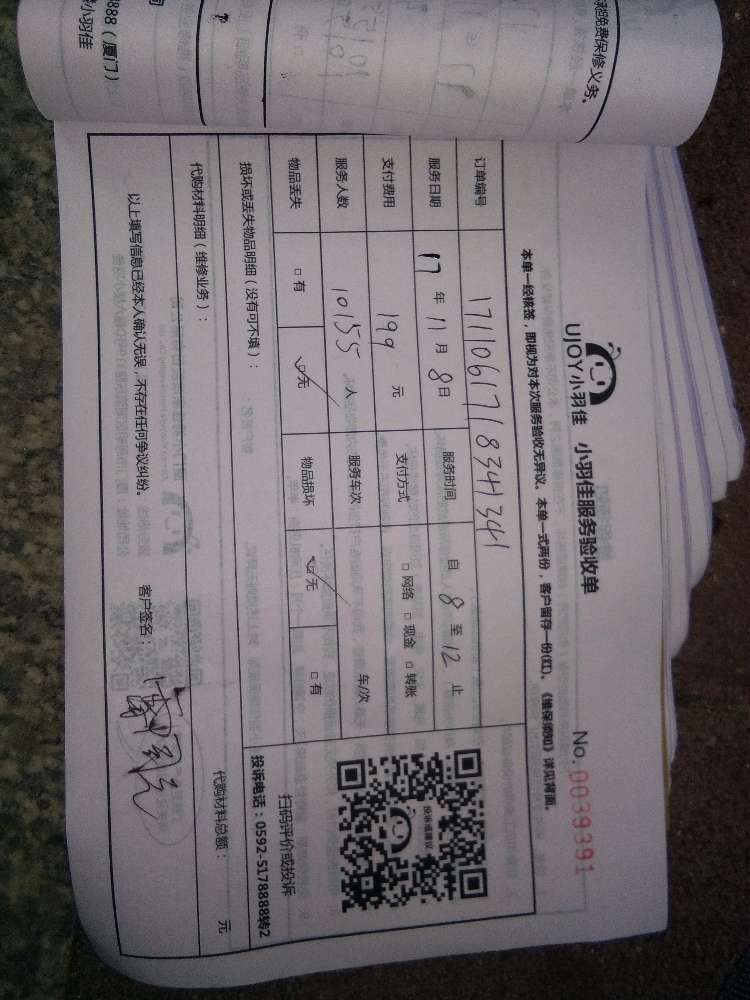 UJOY小羽佳 小羽佳服务验收单
No.0039391
本单一经核签，即视为对本次服务验收无异议。本单一式两份，客户留存一份(红)。《维保须知》详见背面。
订单编号 171106171834341
服务日期 17年 11月 8日 服务时间 自 8 至 12 止
支付费用 199 元 支付方式 □网络 □现金 □转账
服务人数 10155 人 服务车次 车/次
物品丢失 □有 ☑无 物品损坏 ☑无 □有
投诉或建议
扫码评价或投诉
投诉电话：0592-5178888转2
损坏或丢失物品明细（没有可不填）：
代购材料明细（维修业务）： 代购材料总额： 元
以上填写信息已经本人确认无误，不存在任何争议纠纷。 客户签名：
免费保修义务。
888（厦门）
小羽佳